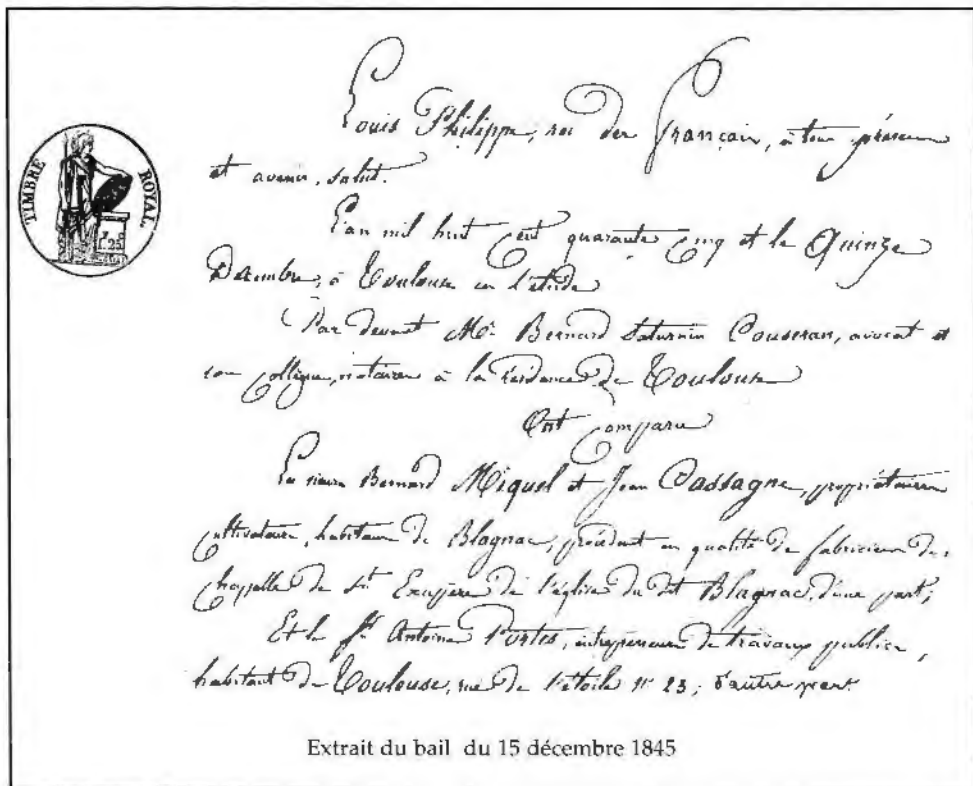 Louis Philippe, roi des Français, à tous présens
et avenir, salut.
TIMBRE ROYAL
1.25
L'an mil huit cent quarante cinq et le Quinze
Décembre, à Toulouse en l'étude
Par devant Me Bernard Saturnin Couseran, avocat et
son collègue, notaires à la résidence de Toulouse
Ont comparu
Les sieurs Bernard Miquel et Jean Cassagne, propriétaires
cultivateurs, habitans de Blagnac, procédant en qualité de fabriciens de
chapelle de St Exupère de l'église du dit Blagnac, d'une part;
Et le Sr Antoine Portes, entrepreneur de travaux publics,
habitant de Toulouse, rue de l'étoile no 23; d'autre part.
Extrait du bail du 15 décembre 1845